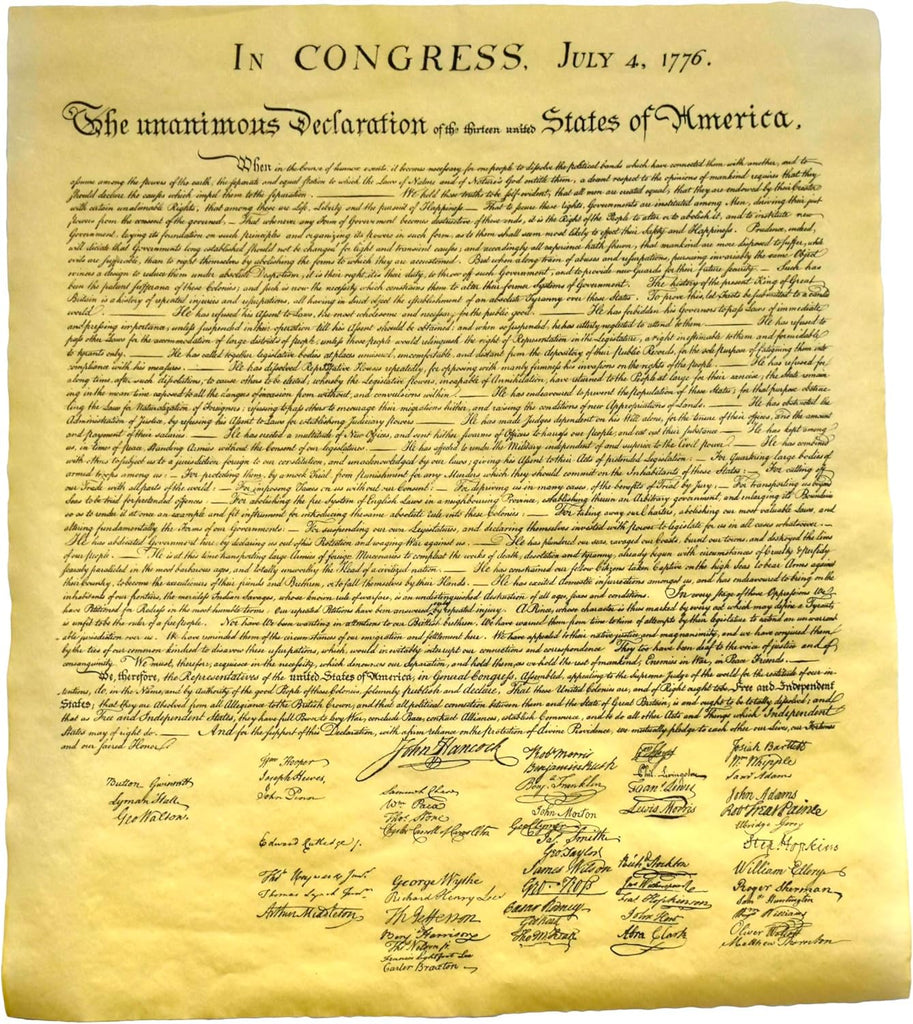 In CONGRESS, July 4, 1776.
The unanimous Declaration of the thirteen united States of America,
When in the Course of human events, it becomes necessary for one people to dissolve the political bands which have connected them with another, and to
assume among the powers of the earth, the separate and equal station to which the Laws of Nature and of Nature's God entitle them, a decent respect to the opinions of mankind requires that they
should declare the causes which impel them to the separation. — We hold these truths to be self-evident, that all men are created equal, that they are endowed by their Creator
with certain unalienable Rights, that among these are Life, Liberty and the pursuit of Happiness. — That to secure these rights, Governments are instituted among Men, deriving their just
powers from the consent of the governed, — That whenever any Form of Government becomes destructive of these ends, it is the Right of the People to alter or to abolish it, and to institute new
Government, laying its foundation on such principles and organizing its powers in such form, as to them shall seem most likely to effect their Safety and Happiness. Prudence, indeed,
will dictate that Governments long established should not be changed for light and transient causes; and accordingly all experience hath shewn, that mankind are more disposed to suffer, while
evils are sufferable, than to right themselves by abolishing the forms to which they are accustomed. But when a long train of abuses and usurpations, pursuing invariably the same Object
evinces a design to reduce them under absolute Despotism, it is their right, it is their duty, to throw off such Government, and to provide new Guards for their future security. — Such has
been the patient sufferance of these Colonies; and such is now the necessity which constrains them to alter their former Systems of Government. The history of the present King of Great
Britain is a history of repeated injuries and usurpations, all having in direct object the establishment of an absolute Tyranny over these States. To prove this, let Facts be submitted to a candid
world. — He has refused his Assent to Laws, the most wholesome and necessary for the public good. — He has forbidden his Governors to pass Laws of immediate
and pressing importance, unless suspended in their operation till his Assent should be obtained; and when so suspended, he has utterly neglected to attend to them. — He has refused to
pass other Laws for the accommodation of large districts of people, unless those people would relinquish the right of Representation in the Legislature, a right inestimable to them and formidable
to tyrants only. — He has called together legislative bodies at places unusual, uncomfortable, and distant from the depository of their public Records, for the sole purpose of fatiguing them into
compliance with his measures. — He has dissolved Representative Houses repeatedly, for opposing with manly firmness his invasions on the rights of the people. — He has refused for
a long time, after such dissolutions, to cause others to be elected; whereby the Legislative powers, incapable of Annihilation, have returned to the People at large for their exercise; the State remain-
ing in the mean time exposed to all the dangers of invasion from without, and convulsions within. — He has endeavoured to prevent the population of these States; for that purpose obstruc-
ting the Laws for Naturalization of Foreigners; refusing to pass others to encourage their migrations hither, and raising the conditions of new Appropriations of Lands. — He has obstructed the
Administration of Justice, by refusing his Assent to Laws for establishing Judiciary powers. — He has made Judges dependent on his Will alone, for the tenure of their offices, and the amount
and payment of their salaries. — He has erected a multitude of New Offices, and sent hither swarms of Officers to harrass our people, and eat out their substance. — He has kept among
us, in times of peace, Standing Armies without the Consent of our legislatures. — He has affected to render the Military independent of and superior to the Civil power. — He has combined
with others to subject us to a jurisdiction foreign to our constitution, and unacknowledged by our laws; giving his Assent to their Acts of pretended Legislation: — For Quartering large bodies of
armed troops among us: — For protecting them, by a mock Trial, from punishment for any Murders which they should commit on the Inhabitants of these States: — For cutting off
our Trade with all parts of the world: — For imposing Taxes on us without our Consent: — For depriving us in many cases, of the benefits of Trial by Jury: — For transporting us beyond
Seas to be tried for pretended offences — For abolishing the free System of English Laws in a neighbouring Province, establishing therein an Arbitrary government, and enlarging its Boundaries
so as to render it at once an example and fit instrument for introducing the same absolute rule into these Colonies: — For taking away our Charters, abolishing our most valuable Laws, and
altering fundamentally the Forms of our Governments: — For suspending our own Legislatures, and declaring themselves invested with power to legislate for us in all cases whatsoever. —
He has abdicated Government here, by declaring us out of his Protection and waging War against us. — He has plundered our seas, ravaged our Coasts, burnt our towns, and destroyed the lives
of our people. — He is at this time transporting large Armies of foreign Mercenaries to compleat the works of death, desolation and tyranny, already begun with circumstances of Cruelty & perfidy
scarcely paralleled in the most barbarous ages, and totally unworthy the Head of a civilized nation. — He has constrained our fellow Citizens taken Captive on the high Seas to bear Arms against
their Country, to become the executioners of their friends and Brethren, or to fall themselves by their Hands. — He has excited domestic insurrections amongst us, and has endeavoured to bring on the
inhabitants of our frontiers, the merciless Indian Savages, whose known rule of warfare, is an undistinguished destruction of all ages, sexes and conditions. In every stage of these Oppressions We
have Petitioned for Redress in the most humble terms: Our repeated Petitions have been answered only by repeated injury. A Prince, whose character is thus marked by every act which may define a Tyrant,
is unfit to be the ruler of a free people. Nor have We been wanting in attentions to our Brittish brethren. We have warned them from time to time of attempts by their legislature to extend an unwarrant-
able jurisdiction over us. We have reminded them of the circumstances of our emigration and settlement here. We have appealed to their native justice and magnanimity, and we have conjured them
by the ties of our common kindred to disavow these usurpations, which, would inevitably interrupt our connections and correspondence. They too have been deaf to the voice of justice and of
consanguinity. We must, therefore, acquiesce in the necessity, which denounces our Separation, and hold them, as we hold the rest of mankind, Enemies in War, in Peace Friends. —
We, therefore, the Representatives of the united States of America, in General Congress, Assembled, appealing to the Supreme Judge of the world for the rectitude of our in-
tentions, do, in the Name, and by Authority of the good People of these Colonies, solemnly publish and declare, That these United Colonies are, and of Right ought to be Free and Independent
States; that they are Absolved from all Allegiance to the British Crown, and that all political connection between them and the State of Great Britain, is and ought to be totally dissolved; and
that as Free and Independent States, they have full Power to levy War, conclude Peace, contract Alliances, establish Commerce, and to do all other Acts and Things which Independent
States may of right do. — And for the support of this Declaration, with a firm reliance on the protection of divine Providence, we mutually pledge to each other our Lives, our Fortunes
and our sacred Honor.
Button Gwinnett
Lyman Hall
Geo Walton.
Wm Hooper
Joseph Hewes,
John Penn
Edward Rutledge
Thos Heyward Junr.
Thomas Lynch Junr.
Arthur Middleton
John Hancock
Samuel Chase
Wm Paca
Thos Stone
Charles Carroll of Carrollton
George Wythe
Richard Henry Lee
Th Jefferson
Benj Harrison
Thos Nelson jr.
Francis Lightfoot Lee
Carter Braxton
Robt Morris
Benjamin Rush
Benj. Franklin
John Morton
Geo Clymer
Jas. Smith
Geo. Taylor
James Wilson
Geo. Ross
Caesar Rodney
Geo Read
Tho M:Kean
Phil. Livingston
Frans. Lewis
Lewis Morris
Richd. Stockton
Jno Witherspoon
Fras. Hopkinson
John Hart
Abra Clark
Josiah Bartlett
Wm Whipple
Saml Adams
John Adams
Robt Treat Paine
Elbridge Gerry
Step. Hopkins
William Ellery
Roger Sherman
Saml Huntington
Wm Williams
Oliver Wolcott
Matthew Thornton